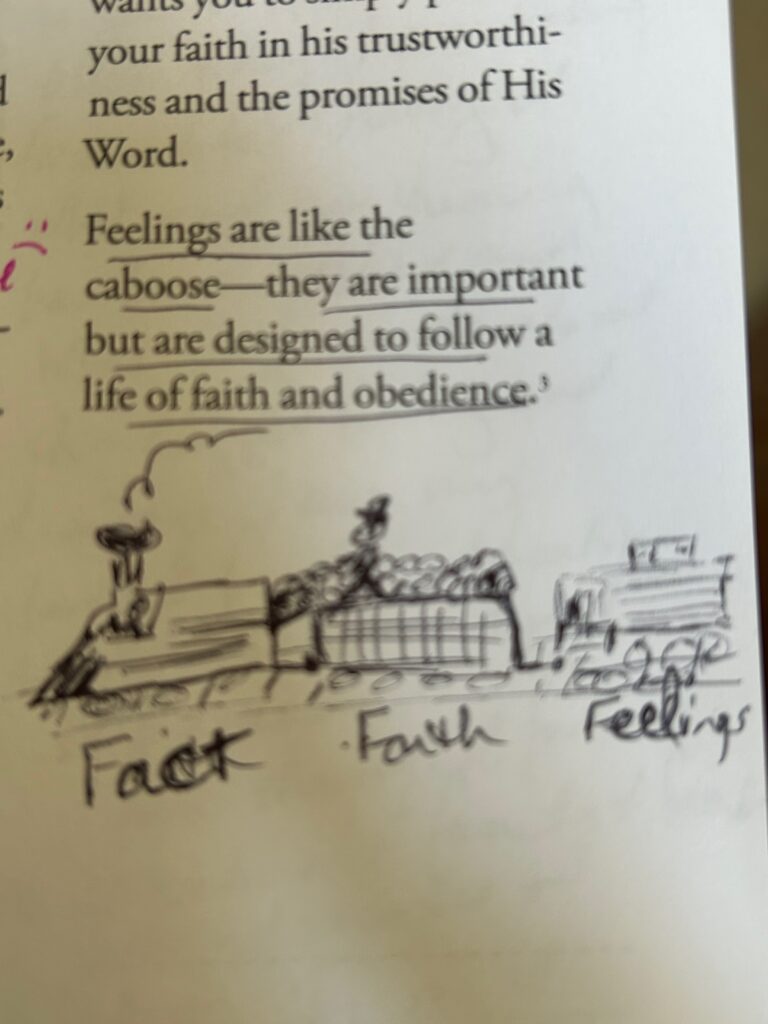 wants you to simply p
your faith in his trustworthi-
ness and the promises of His
Word.
Feelings are like the
caboose—they are important
but are designed to follow a
life of faith and obedience.³
Fact
Faith
Feelings